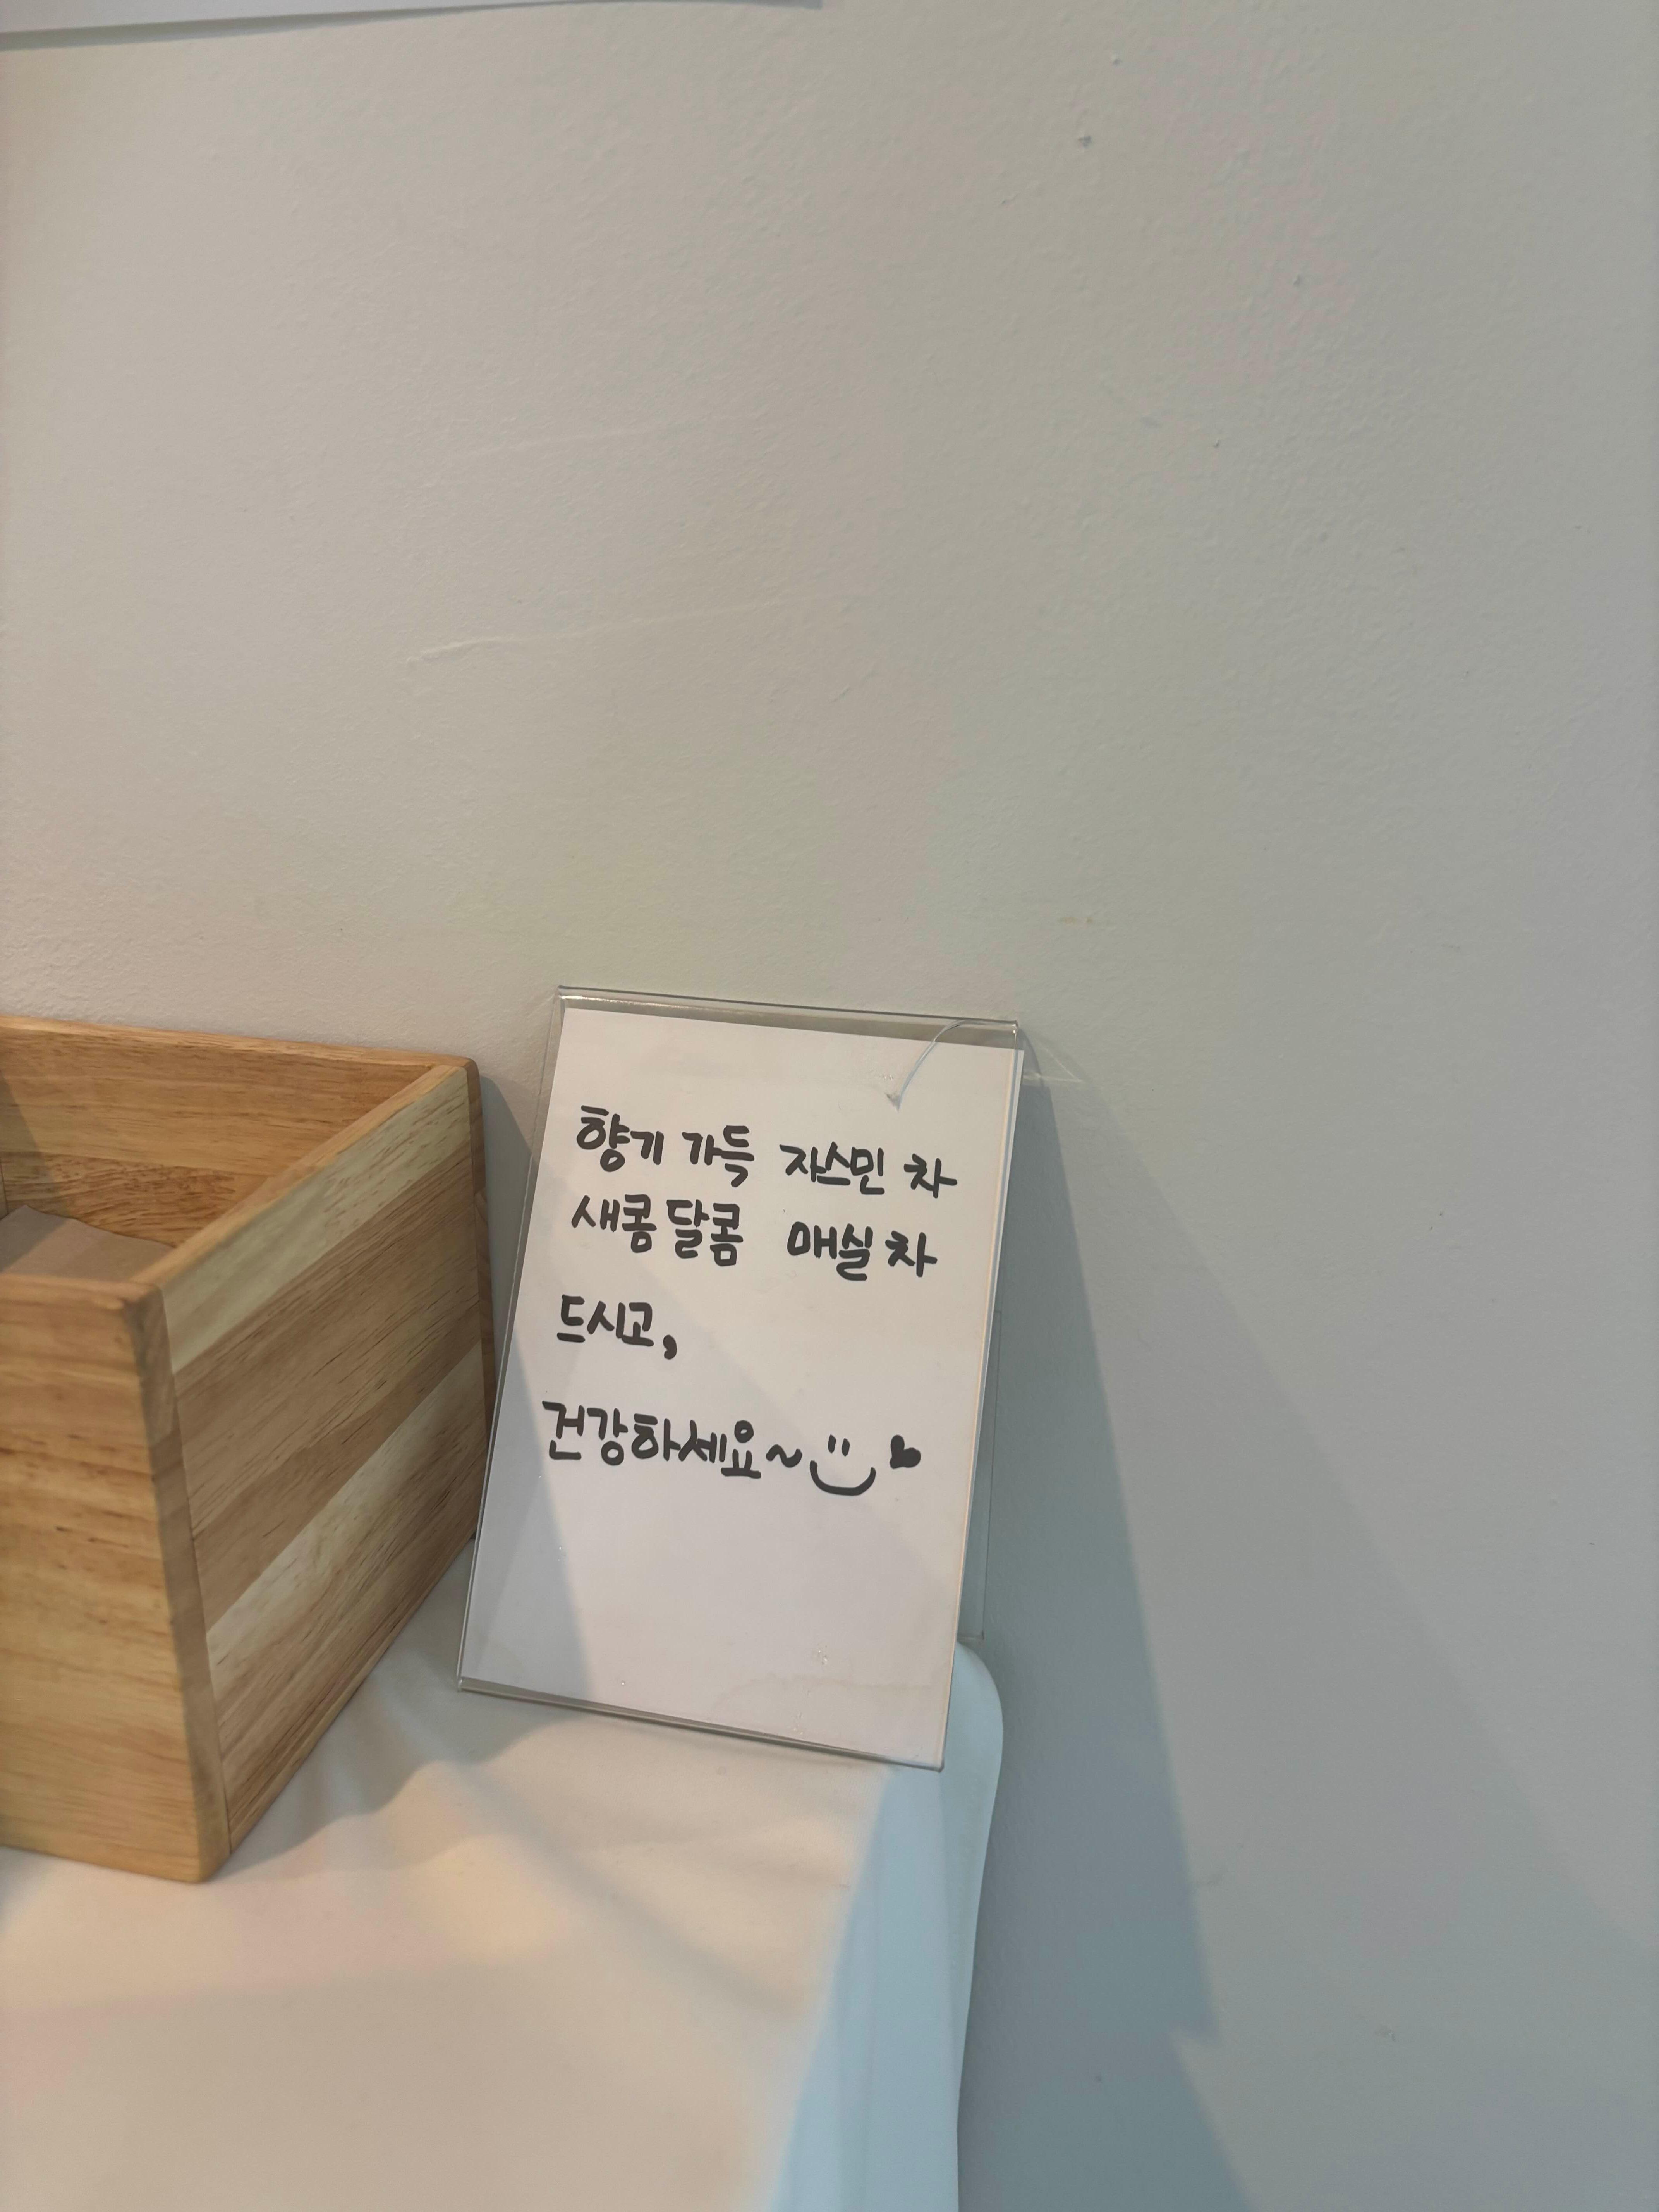 향기 가득 자스민 차
새콤달콤 매실차
드시고,
건강하세요~